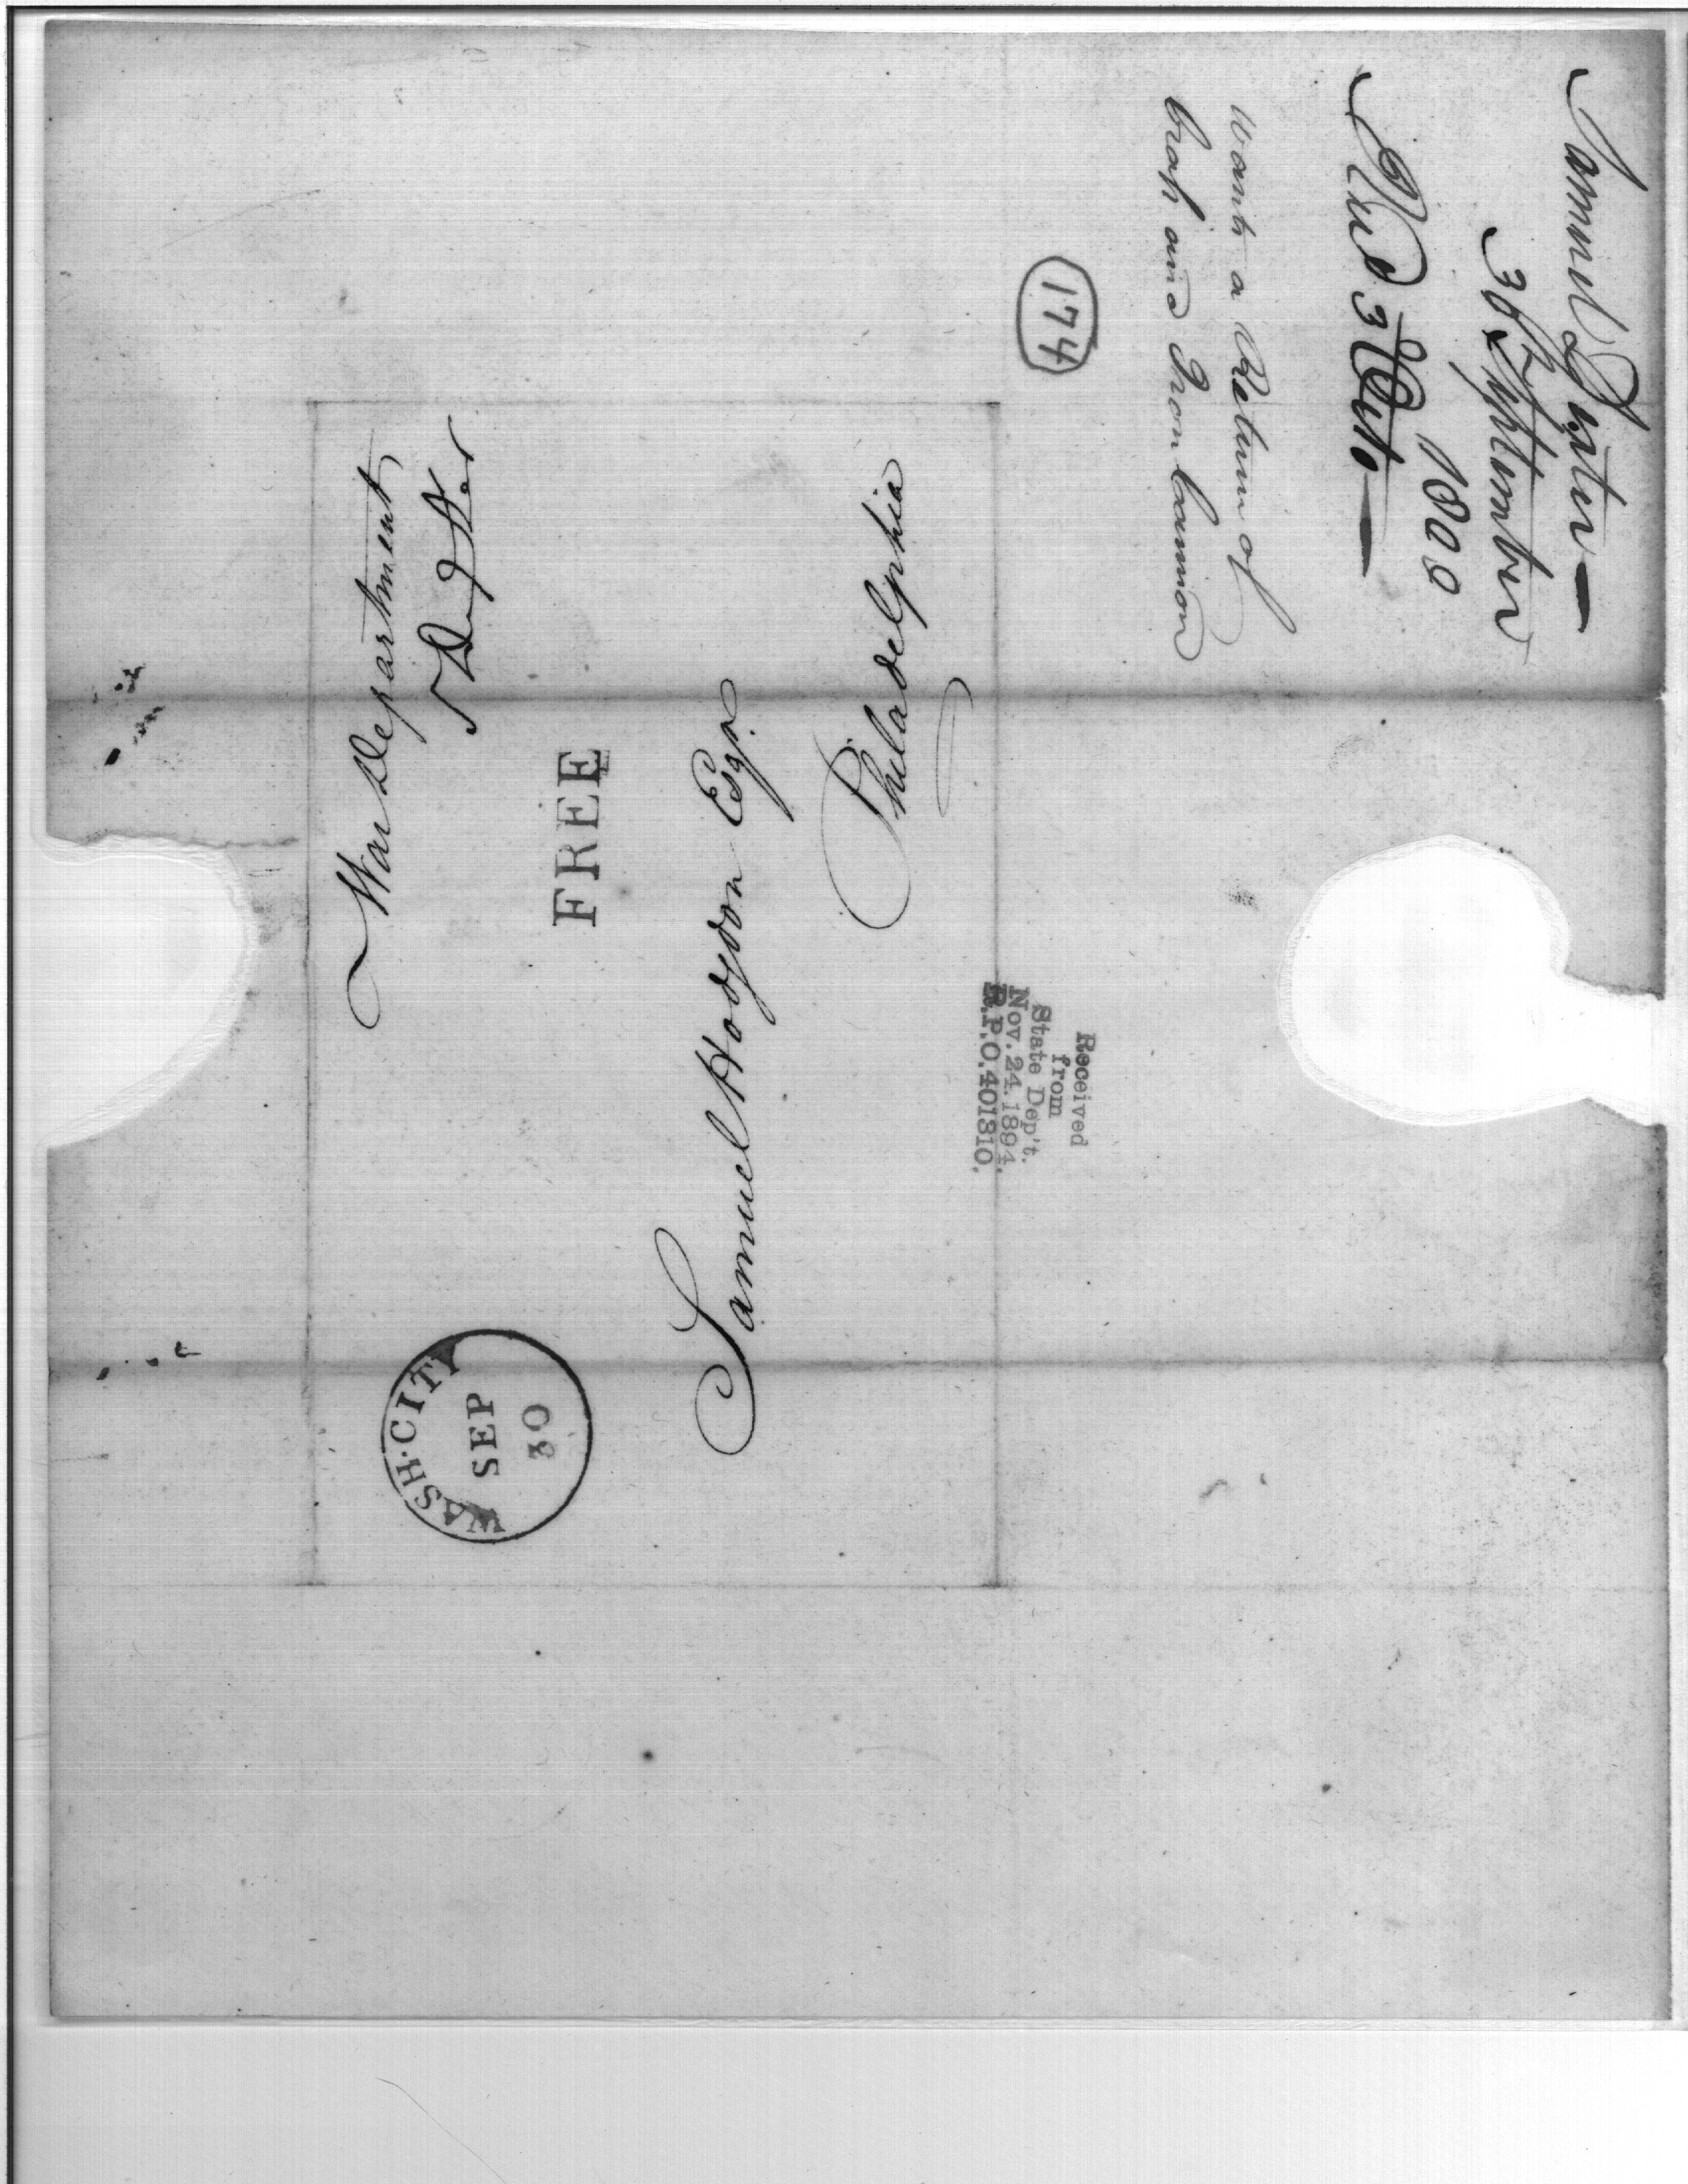 War Department
S Dexter
FREE
WASH. CITY
SEP
30
Samuel Hodgdon Esqr.
Philadelphia
Samuel Dexter
30 September
1800
Recd 3d Octo
Wants a Return of
brass and Iron Cannon
174
Received
from
State Dep't.
Nov. 24. 1894.
R.P.O. 401310.